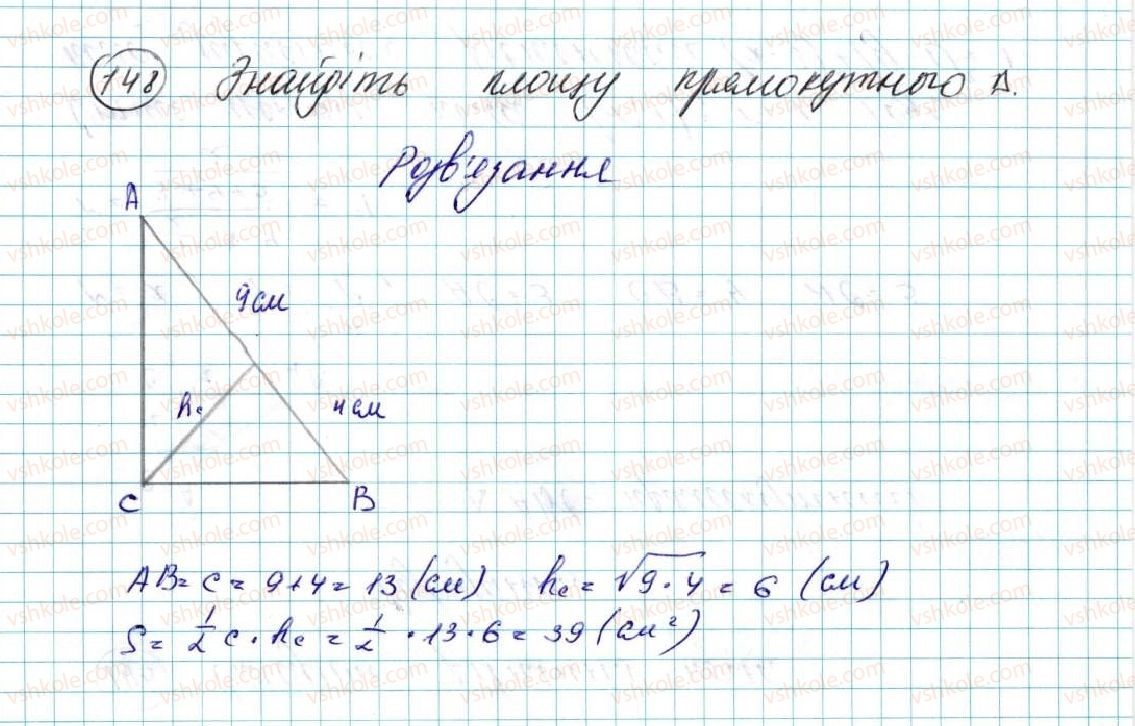 148 Знайдіть площу прямокутного Δ.
Розв'язання
A
9 см
hc
4 см
C
B
AB = c = 9+4 = 13 (см) hc = √9·4 = 6 (см)
S = 1/2 c · hc = 1/2 · 13 · 6 = 39 (см²)
vshkole.com